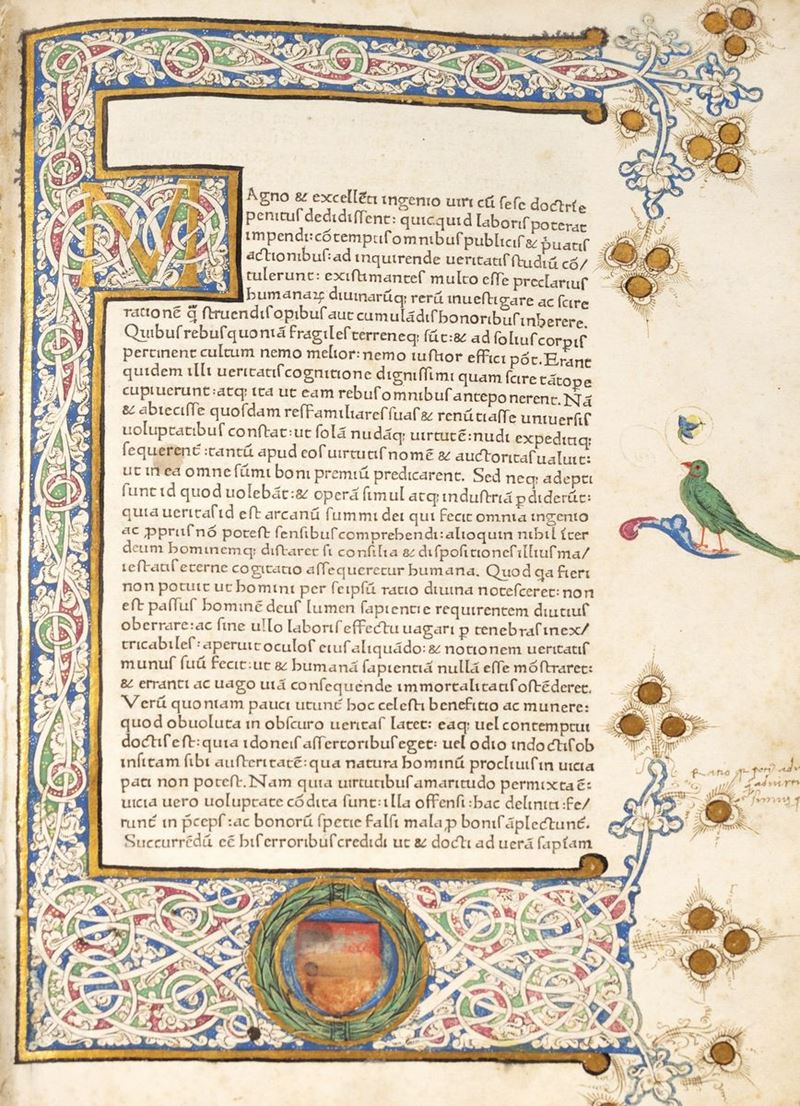 MAgno & excellēti ingenio uiri cū sese doctrīe
penitus dedidissent: quicquid laboris poterat
impendi: cōtemptis omnibus publicis & p̄uatis
actionibus: ad inquirende ueritatis studiū cō/
tulerunt: existimantes multo esse preclarius
humanaꝝ diuinarūq; rerū inuestigare ac scire
rationē q̄ struendis opibus aut cumulādis honoribus inherere.
Quibus rebus quoniā fragiles terreneq; sūt: & ad solius corp̲is
pertinent cultum nemo melior: nemo iustior effici pōt. Erant
quidem illi ueritatis cognitione dignissimi quam scire tātope̲
cupiuerunt: atq; ita ut eam rebus omnibus anteponerent. Nā
& abiecisse quosdam res familiares suas & renūtiasse uniuersis
uoluptatibus constat: ut solā nudāq; uirtutē: nudi expeditiq;
sequerent᷑: tantū apud eos uirtutis nomē & auctoritas ualuit:
ut in ea omne sūmi boni premiū predicarent. Sed neq; adepti
sunt id quod uolebāt: & operā simul atq; industriā ꝑdiderūt:
quia ueritas id est arcanū summi dei qui fecit omnia ingenio
ac ꝓpriis nō potest sensibus comprehendi: alioquin nihil īter
deum hominemq; distaret si consilia & dispositiones illius ma/
iestatis eterne cogitatio assequeretur humana. Quod qa fieri
non potuit ut homini per seipsū ratio diuina notesceret: non
est passus hominē deus lumen sapientie requirentem diutius
oberrare: ac sine ullo laboris effectu uagari ꝑ tenebras inex/
tricabiles: aperuit oculos eius aliquādo: & notionem ueritatis
munus suū fecit: ut & humanā sapientiā nullā esse mōstraret:
& erranti ac uago uiā consequende immortalitatis ostēderet.
Verū quoniam pauci utunt᷑ hoc celesti benefitio ac munere:
quod obuoluta in obscuro ueritas latet: eaq; uel contemptui
doctis est: quia idoneis assertoribus eget: uel odio indoctis ob
insitam sibi austeritatē: qua natura hominū procliuis in uicia
pati non potest. Nam quia uirtutibus amaritudo permixta ē:
uicia uero uoluptate cōdita sunt: illa offensi: hac deliniti: fe/
runt᷑ in p̄ceps: ac bonorū spetie falsi mala ꝓ bonis āplectunt᷑.
Succurrēdū eē his erroribus credidi ut & docti ad uerā sapīam
Ratio